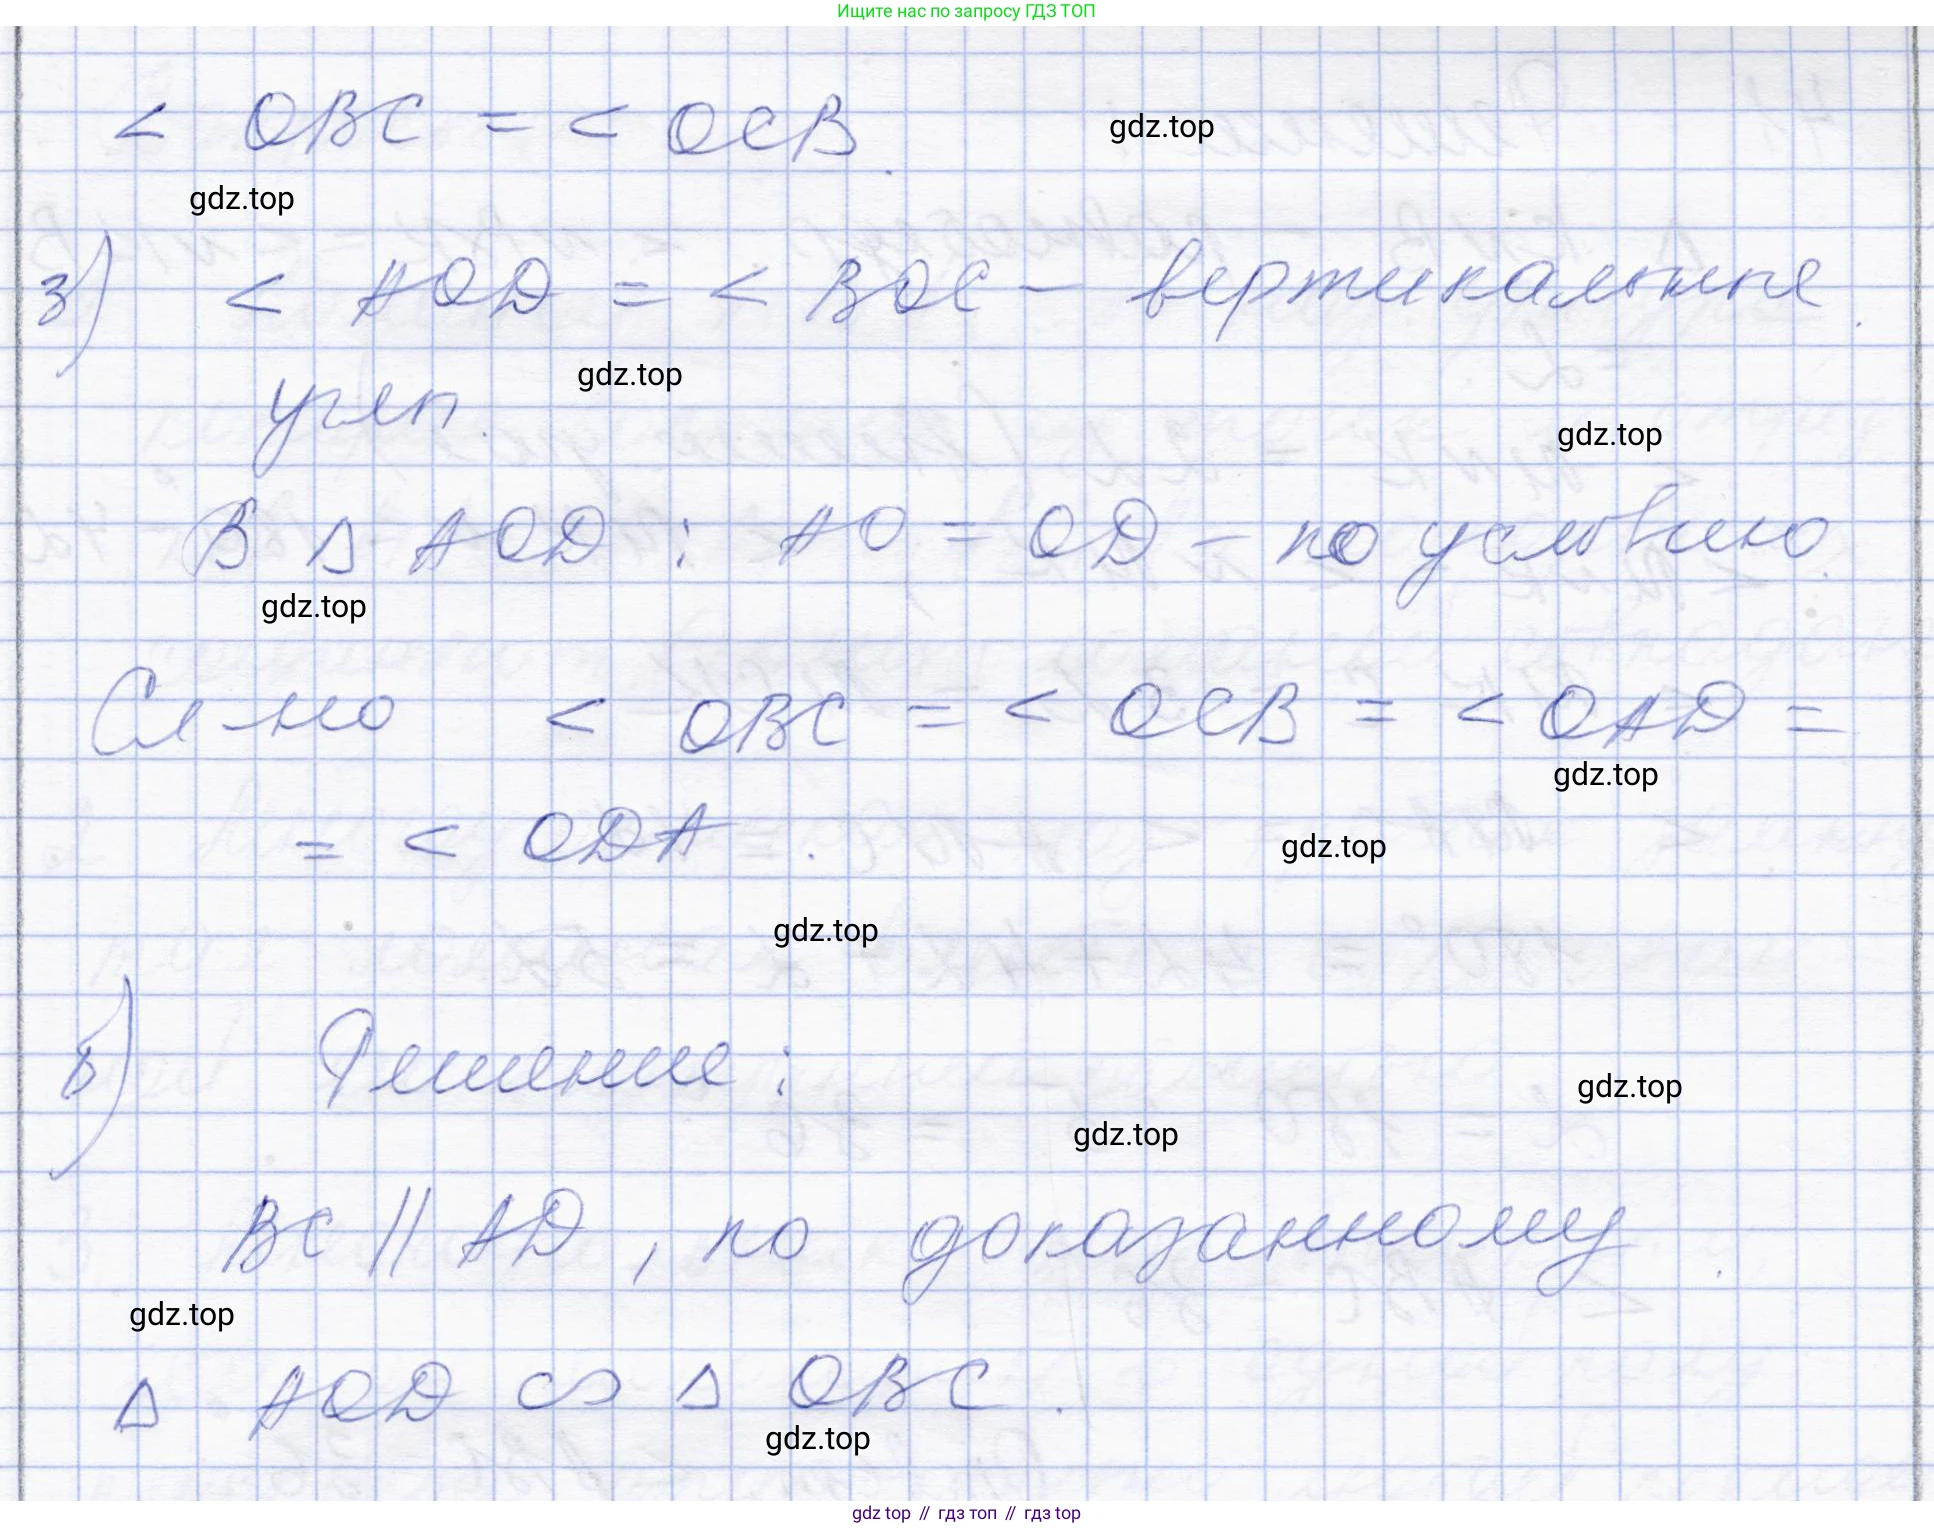 Ищите нас по запросу ГДЗ ТОП
< OBC = < OCB.
gdz.top
gdz.top
3) < AOD = < BOC – вертикальные
углы.
gdz.top
gdz.top
В Δ AOD: AO = OD – по условию.
gdz.top
Сл-но < OBC = < OCB = < OAD =
gdz.top
= < ODA.
gdz.top
gdz.top
б) Решение:
gdz.top
gdz.top
BC || AD, по доказанному.
gdz.top
Δ AOD ∽ Δ OBC.
gdz.top
gdz top // гдз топ // гдз top